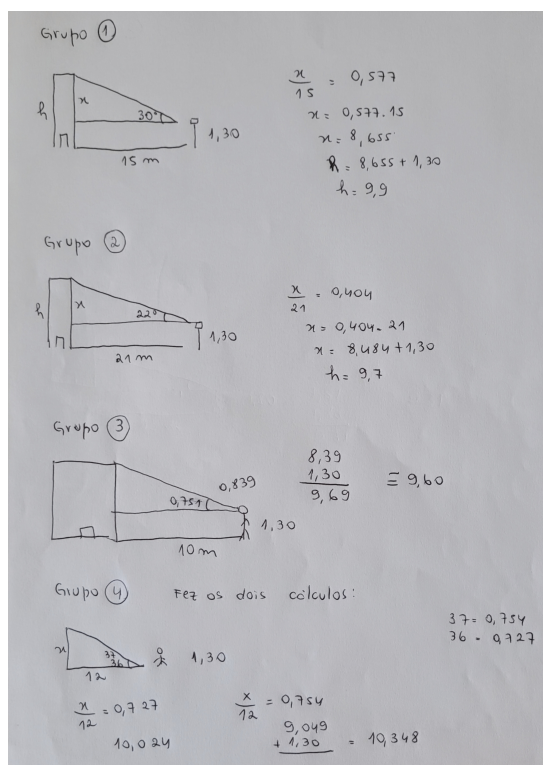 Grupo 1
h
x
30°
1,30
15 m
x/15 = 0,577
x = 0,577.15
x = 8,655
h = 8,655 + 1,30
h = 9,9
Grupo 2
h
x
22°
1,30
21 m
x/21 = 0,404
x = 0,404.21
x = 8,484 + 1,30
h = 9,7
Grupo 3
0,839
0,751
1,30
10 m
8,39
1,30
9,69
≡ 9,60
Grupo 4 Fez os dois cálculos:
37 = 0,754
36 = 0,727
x
37
36
12
1,30
x/12 = 0,727
10,024
x/12 = 0,754
9,049
+ 1,30 = 10,348